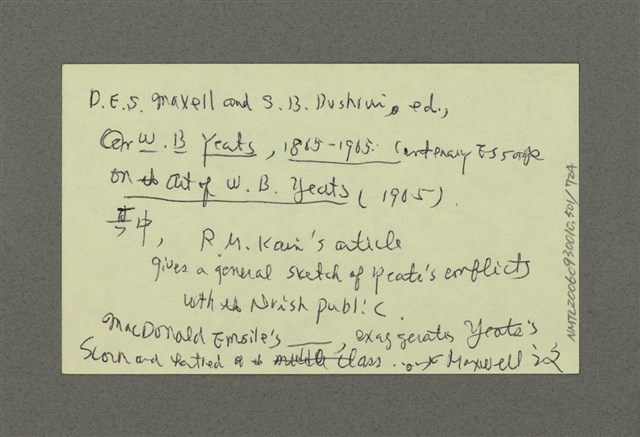 D.E.S. Maxell and S.B. Bushrui, ed.,
W. B Yeats, 1865-1965: Centenary Essays
on the Art of W. B. Yeats (1965).
其中,
R.M. Kain's article
gives a general sketch of Yeats's conflicts
with the Irish public.
MacDonald Emslie's ___, exaggerates Yeats's
Scorn and hatred of the middle class ... Maxwell
NMTL20060930010.501/724